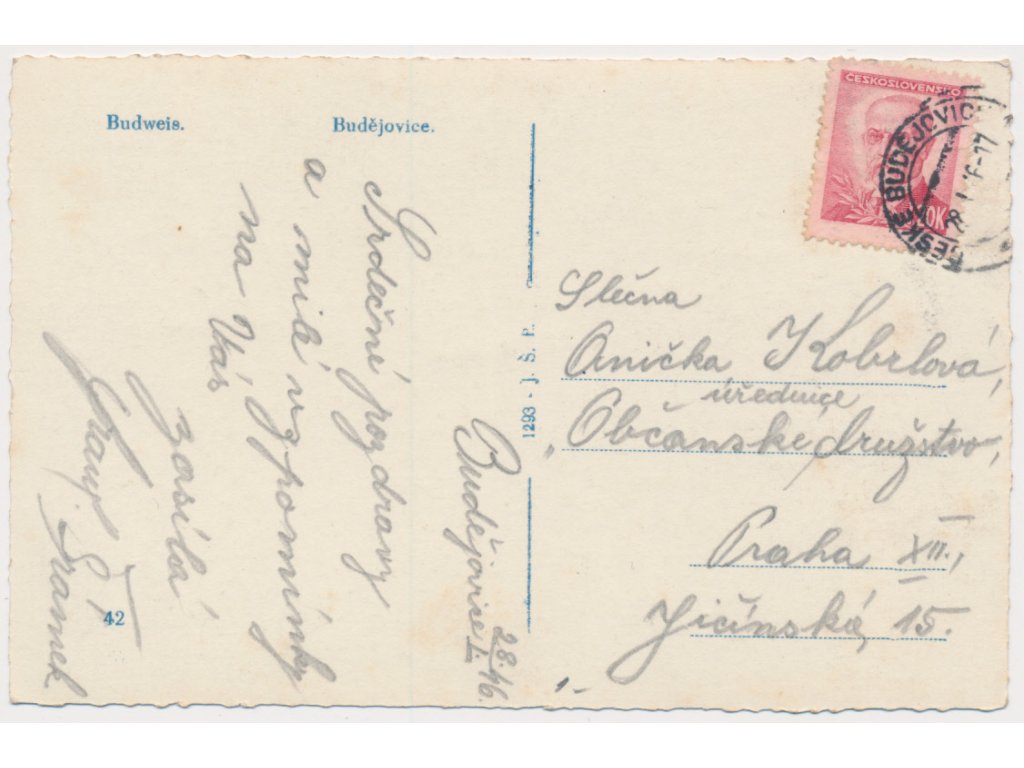 Budweis.
Budějovice.
Srdečné pozdravy
a milé vzpomínky
na Vás
zasílá
Šrámek
Budějovice
28./I. 46.
42
1293 - J. Š. P.
ČESKOSLOVENSKO
ČESKÉ BUDĚJOVICE
Slečna
Anička Kobrlová,
úřednice
"Občanské družstvo,
Praha XII.,
Jičínská 15.